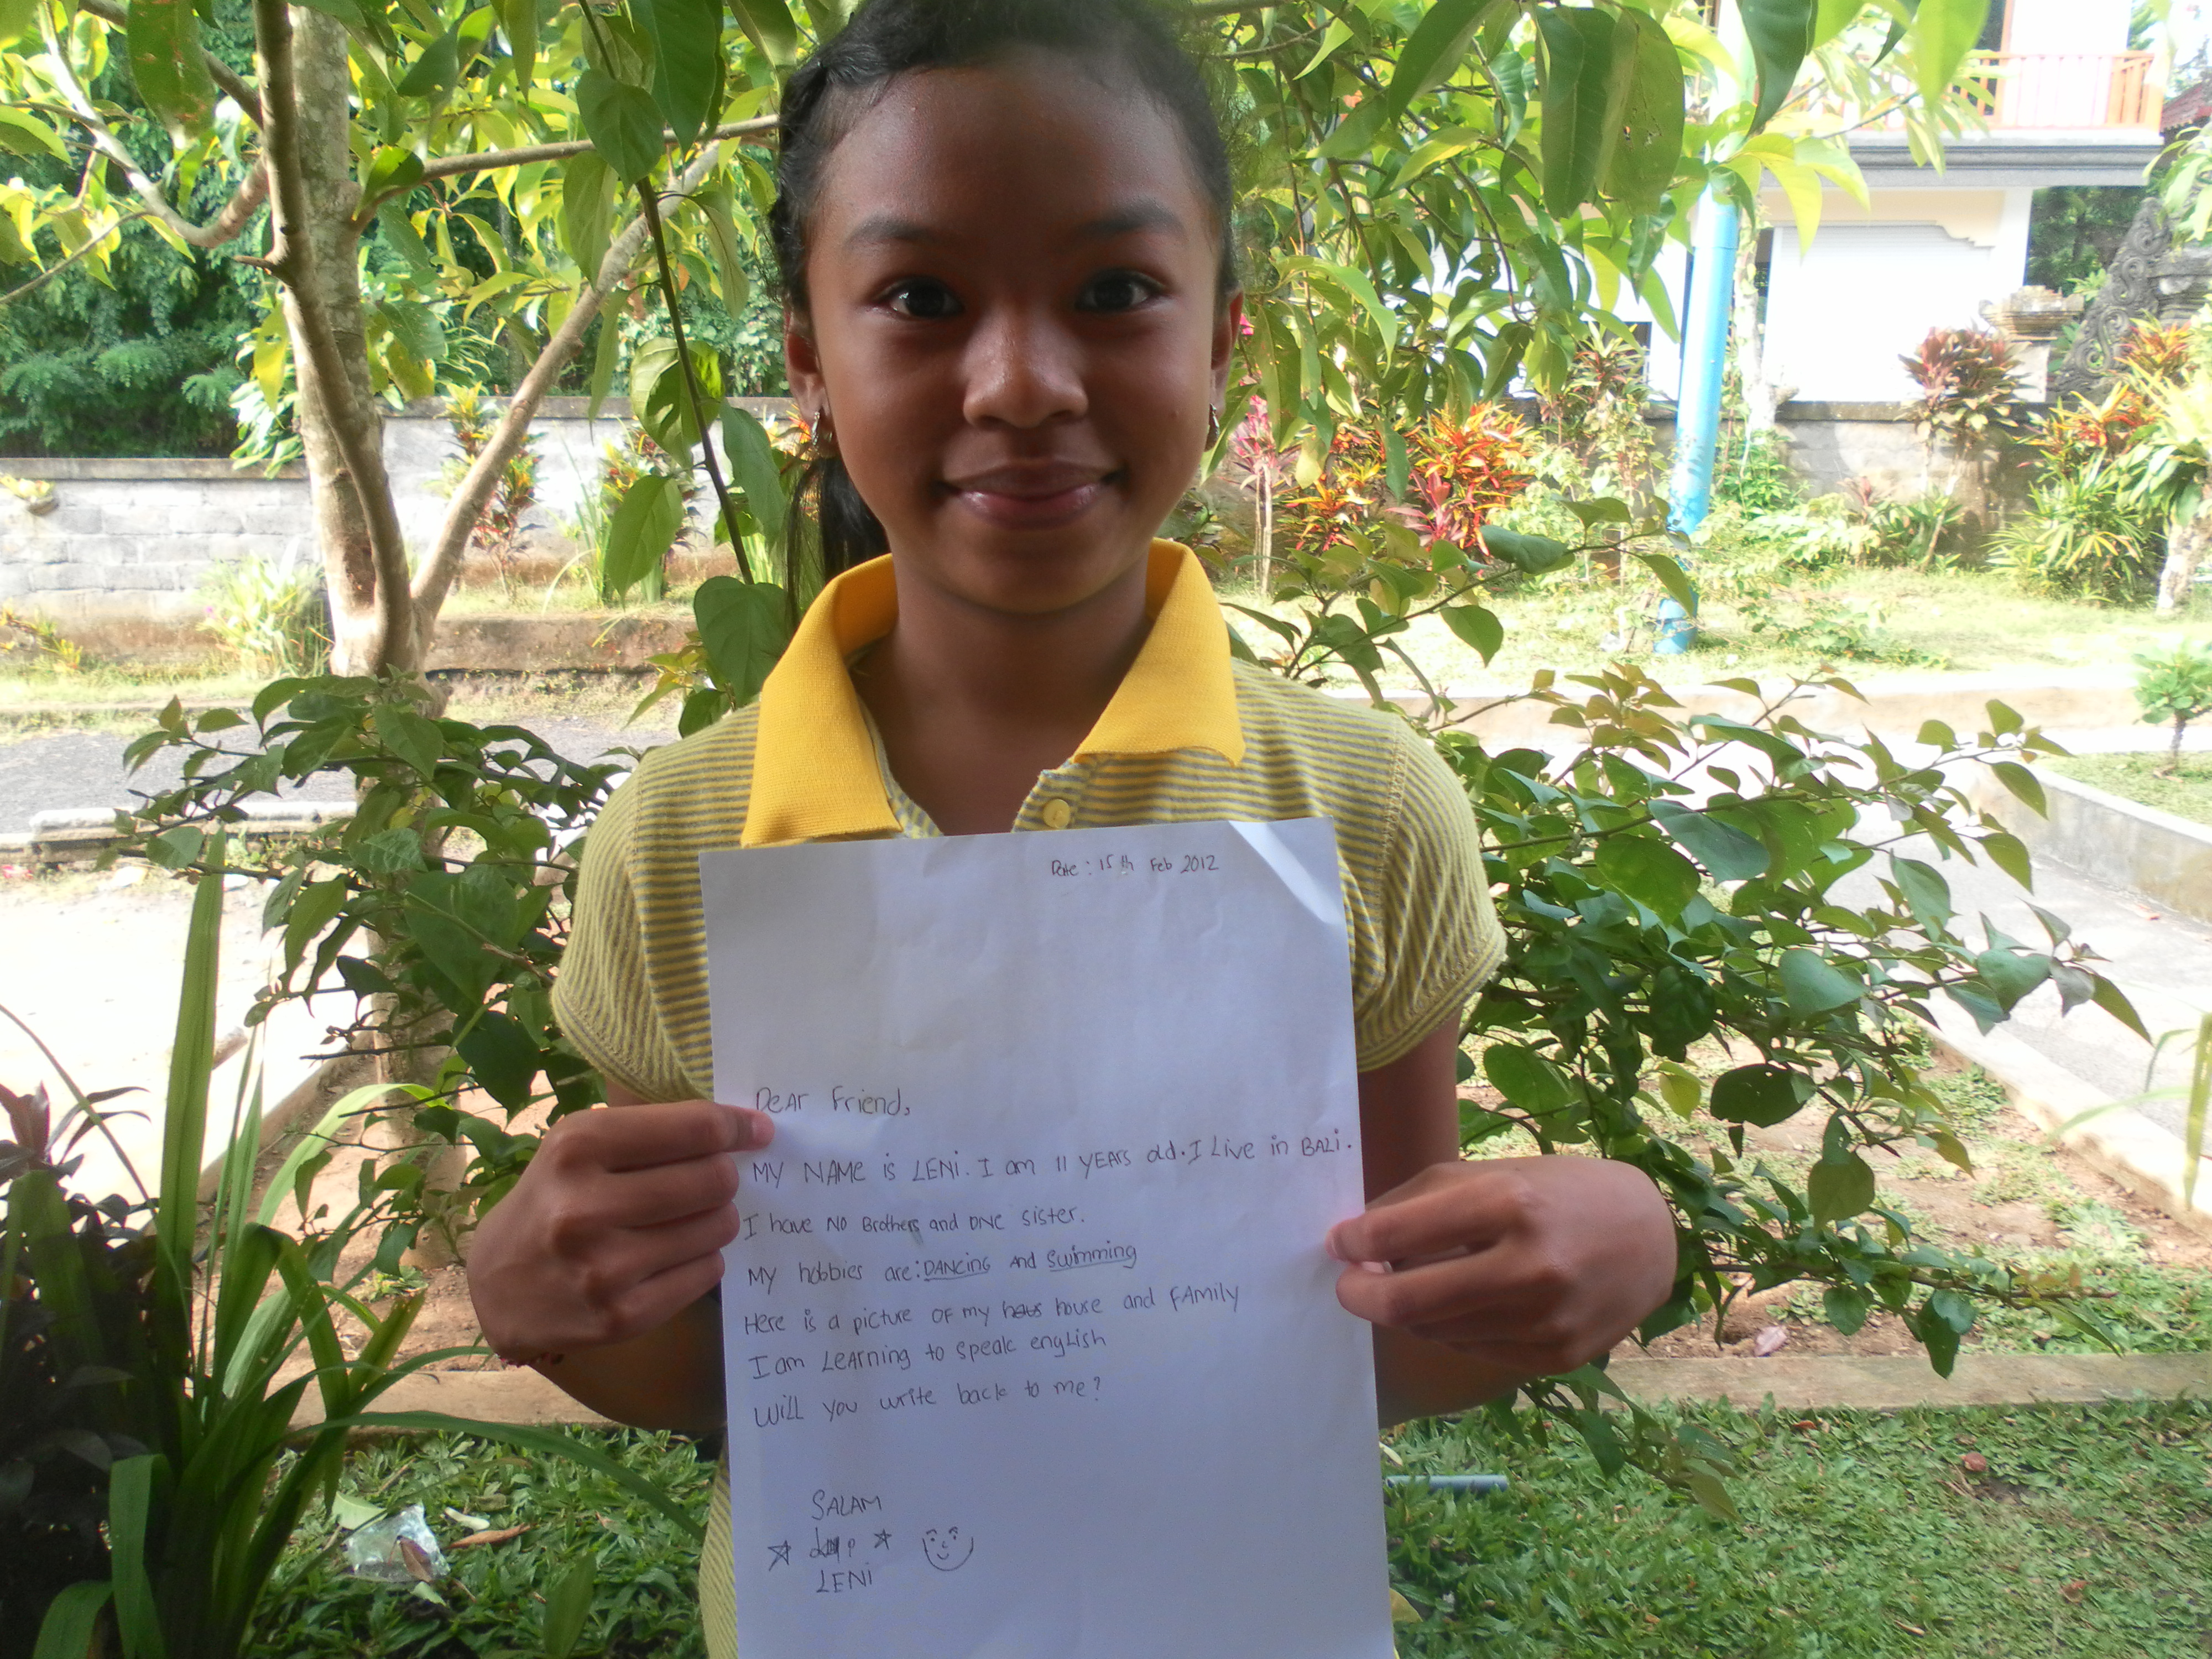 Date : 15 th Feb 2012
Dear Friend,
MY NAME is LENi. I am 11 YEARS old. I Live in BALi.
I have NO Brothers and ONE sister.
MY hobbies are: DANCING AND Swimming
Here is a picture OF my house and FAMily
I am LeArning to speak engLish
WiLL you write back to me?
SALAM
LENi